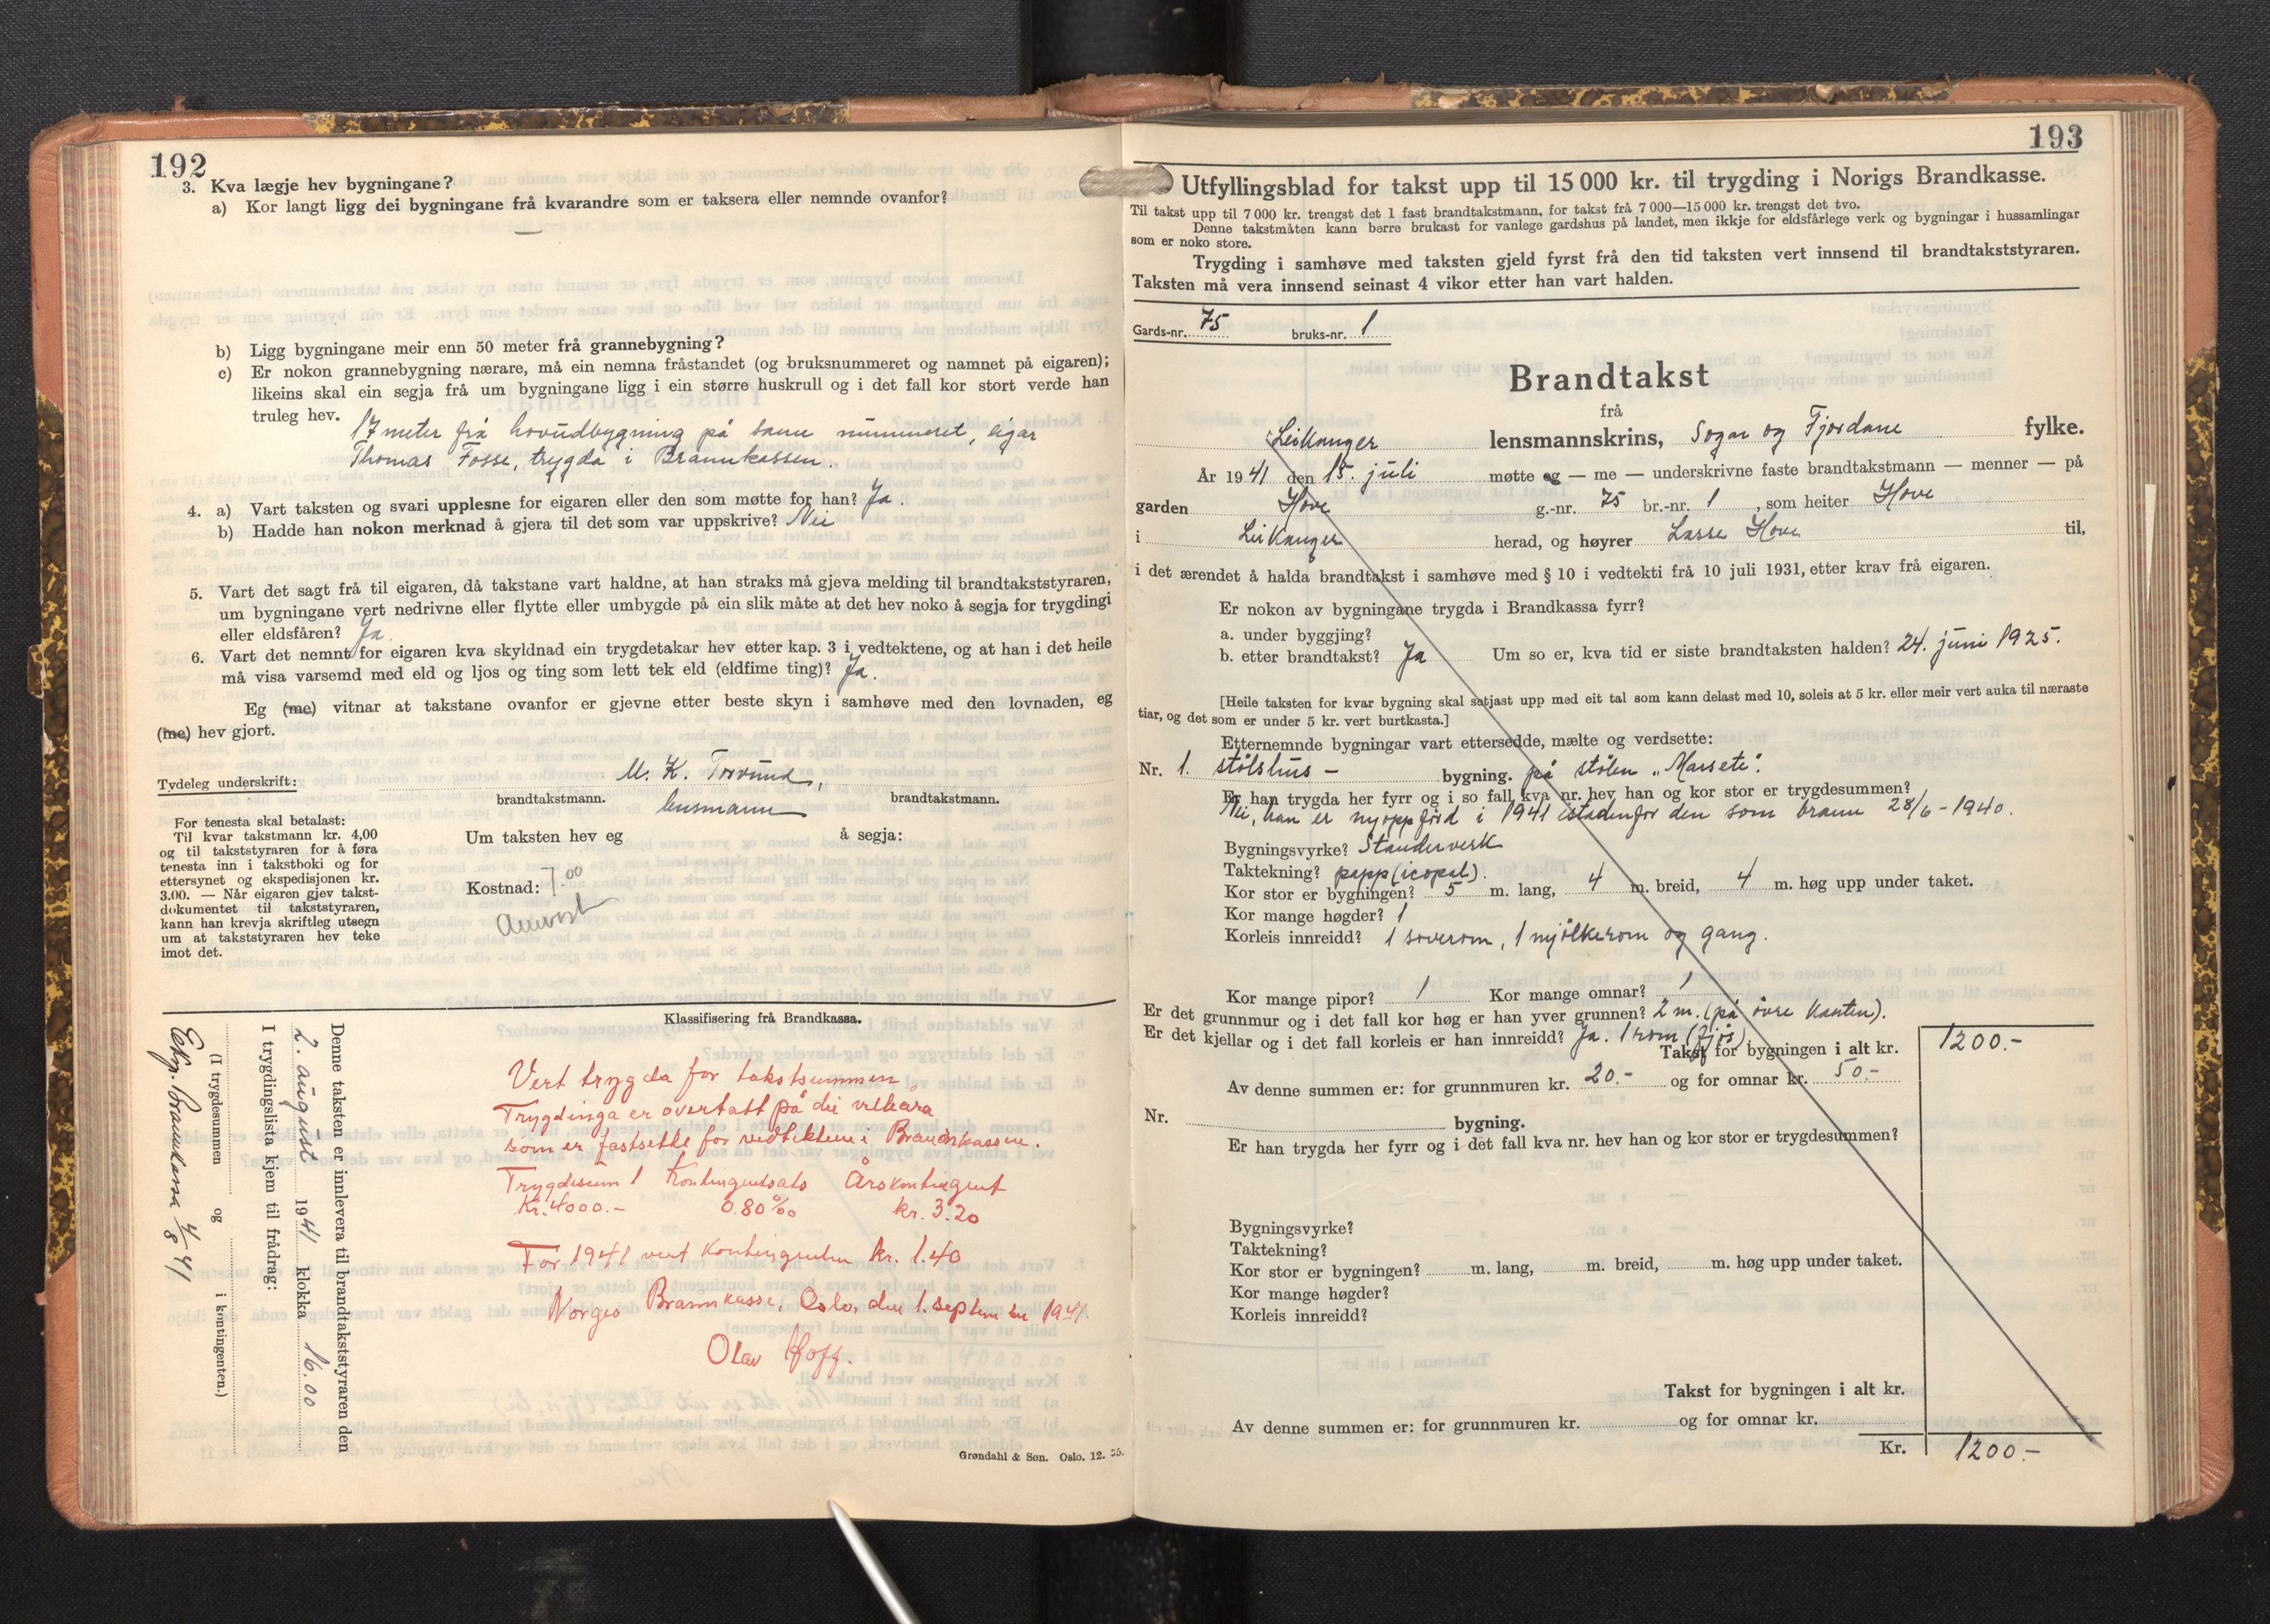 192
3. Kva lægje hev bygningane?
a) Kor langt ligg dei bygningane frå kvarandre som er taksera eller nemnde ovanfor?
—
b) Ligg bygningane meir enn 50 meter frå grannebygning?
c) Er nokon grannebygning nærare, må ein nemna fråstandet (og bruksnummeret og namnet på eigaren);
likeins skal ein segja frå um bygningane ligg i ein større huskrull og i det fall kor stort verde han
truleg hev.
17 meter frå hovudbygning på same nummeret, eigar
Thomas Fosse, trygda i Brannkassen.
4. a) Vart taksten og svari upplesne for eigaren eller den som møtte for han? Ja.
b) Hadde han nokon merknad å gjera til det som var uppskrive? Nei
5. Vart det sagt frå til eigaren, då takstane vart haldne, at han straks må gjeva melding til brandtakststyraren,
um bygningane vert nedrivne eller flytte eller umbygde på ein slik måte at det hev noko å segja for trygdingi
eller eldsfåren? Ja.
6. Vart det nemnt for eigaren kva skyldnad ein trygdetakar hev etter kap. 3 i vedtektene, og at han i det heile
må visa varsemd med eld og ljos og ting som lett tek eld (eldfime ting)? Ja.
Eg (me) vitnar at takstane ovanfor er gjevne etter beste skyn i samhøve med den lovnaden, eg
(me) hev gjort.
Tydeleg underskrift: M. K. Torvund,
brandtakstmann. lensmann brandtakstmann.
For tenesta skal betalast:
Til kvar takstmann kr. 4,00
og til takststyraren for å føra
tenesta inn i takstboki og for
ettersynet og ekspedisjonen kr.
3.00. — Når eigaren gjev takst-
dokumentet til takststyraren,
kann han krevja skriftleg utsegn
um at takststyraren hev teke
imot det.
Um taksten hev eg å segja:
Kostnad: 7.00
Klassifisering frå Brandkassa.
Vert trygda for takstsummen.
Trygdinga er overtatt på dei vilkåra
som er fastsette for vedtektene i Brandkassen.
Trygdesum Kontingentsats Årskontingent
Kr. 4000.- 0.80 ‰ kr. 3.20
For 1941 vert kontingenten kr. 1.40
Norges Brannkasse, Oslo, den 1. september 1941.
Olav Hoff.
Denne taksten er innlevera til brandtakststyraren den
2. august 1941 klokka 16.00
I trygdingslista kjem til frådrag:
(I trygdesummen og i kontingenten.)
Eksp. Brannkassa 4/8 41
Grøndahl & Søn. Oslo. 12. 35.
193
Utfyllingsblad for takst upp til 15 000 kr. til trygding i Norigs Brandkasse.
Til takst upp til 7 000 kr. trengst det 1 fast brandtakstmann, for takst frå 7 000—15 000 kr. trengst det tvo.
Denne takstmåten kann berre brukast for vanlege gardshus på landet, men ikkje for eldsfårlege verk og bygningar i hussamlingar
som er noko store.
Trygding i samhøve med taksten gjeld fyrst frå den tid taksten vert innsend til brandtakststyraren.
Taksten må vera innsend seinast 4 vikor etter han vart halden.
Gards-nr. 75 bruks-nr. 1
Brandtakst
frå
Leikanger lensmannskrins, Sogn og Fjordane fylke.
År 1941 den 15. juli møtte eg — me — underskrivne faste brandtakstmann — menner — på
garden Hove g.-nr. 75 br.-nr. 1, som heiter Hove
i Leikanger herad, og høyrer Lasse Hove til,
i det ærendet å halda brandtakst i samhøve med § 10 i vedtekti frå 10 juli 1931, etter krav frå eigaren.
Er nokon av bygningane trygda i Brandkassa fyrr?
a. under byggjing?
b. etter brandtakst? Ja Um so er, kva tid er siste brandtaksten halden? 24. juni 1925.
[Heile taksten for kvar bygning skal setjast upp med eit tal som kann delast med 10, soleis at 5 kr. eller meir vert auka til næraste
tiar, og det som er under 5 kr. vert burtkasta.]
Etternemnde bygningar vart ettersedde, mælte og verdsette:
Nr. 1. stølshus - bygning. på stølen "Marsete".
Er han trygda her fyrr og i so fall kva nr. hev han og kor stor er trygdesummen?
Nei, han er nyoppförd i 1941 istadenfor den som brann 28/6 - 1940.
Bygningsvyrke? Standerverk
Taktekning? papp (icopal).
Kor stor er bygningen? 5 m. lang, 4 m. breid, 4 m. høg upp under taket.
Kor mange høgder? 1
Korleis innreidd? 1 soverom, 1 mjölkerom og gang.
Kor mange pipor? 1 Kor mange omnar? 1
Er det grunnmur og i det fall kor høg er han yver grunnen? 2 m. (på övre kanten).
Er det kjellar og i det fall korleis er han innreidd? Ja. 1 rom (fjös)
Takst for bygningen i alt kr. 1200.-
Av denne summen er: for grunnmuren kr. 20.- og for omnar kr. 50.-
Nr. bygning.
Er han trygda her fyrr og i det fall kva nr. hev han og kor stor er trygdesummen?
Bygningsvyrke?
Taktekning?
Kor stor er bygningen? m. lang, m. breid, m. høg upp under taket.
Kor mange høgder?
Korleis innreidd?
Takst for bygningen i alt kr.
Av denne summen er: for grunnmuren kr. og for omnar kr.
Kr. 1200.-